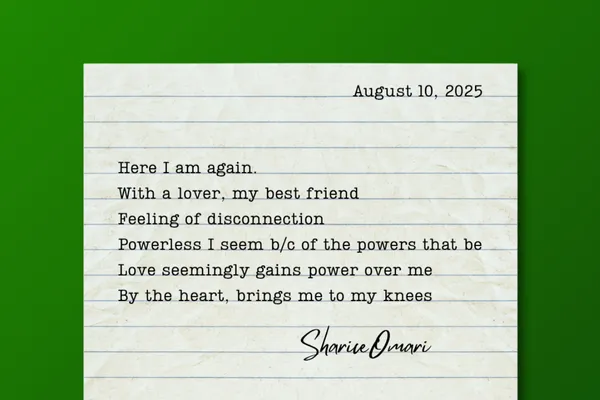 August 10, 2025
Here I am again.
With a lover, my best friend
Feeling of disconnection
Powerless I seem b/c of the powers that be
Love seemingly gains power over me
By the heart, brings me to my knees
Sharice Omari